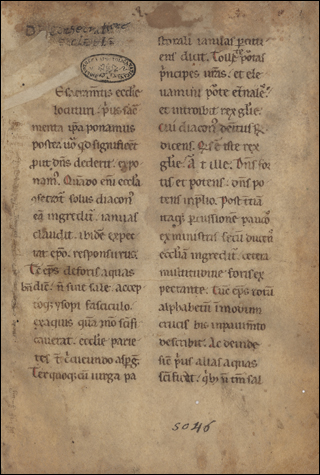 E sacramtis ecclie
locuturi. p'us sac̄
menta ip̄a ponamus
postea uō qd significent
put dn̄s dederit. expo
nam'. Quando eni eccl̄a
solus diacon'
eā ingredit. ianuas
claudit. ibidē expec
tat ep̄o. responsurus.
Tc̄ ep̄s deforis aquas
n̄ sine sale. accep
toq; ysopi fasciculo.
ex aquis quā mō sc̄ifi
cauerat. ecclie parie
tes circueundo aspg̃.
uirga pa
storali ianuas pcuti
ens dicit. Tollite portas
p'ncipes uras. et ele
uamini porte et̄nales.
et introibit rex glīe.
Cui diacon' deintus
dicens. Quis ē iste rex
glīe. At ille. Dn̄s for
tis et potens. dn̄s po
tens in plio. Post t'ciā
pcussione paucis
ex ministris secū ductis
eccliā ingredit. cetera
multitudine foris ex
pectante. Tūc ep̄s totū
alphabetū ī modum
crucis bis in pauimto
describit. Ac deinde
alias aquas
sc̄ificat. qb; n̄ tm̄ sal
5046